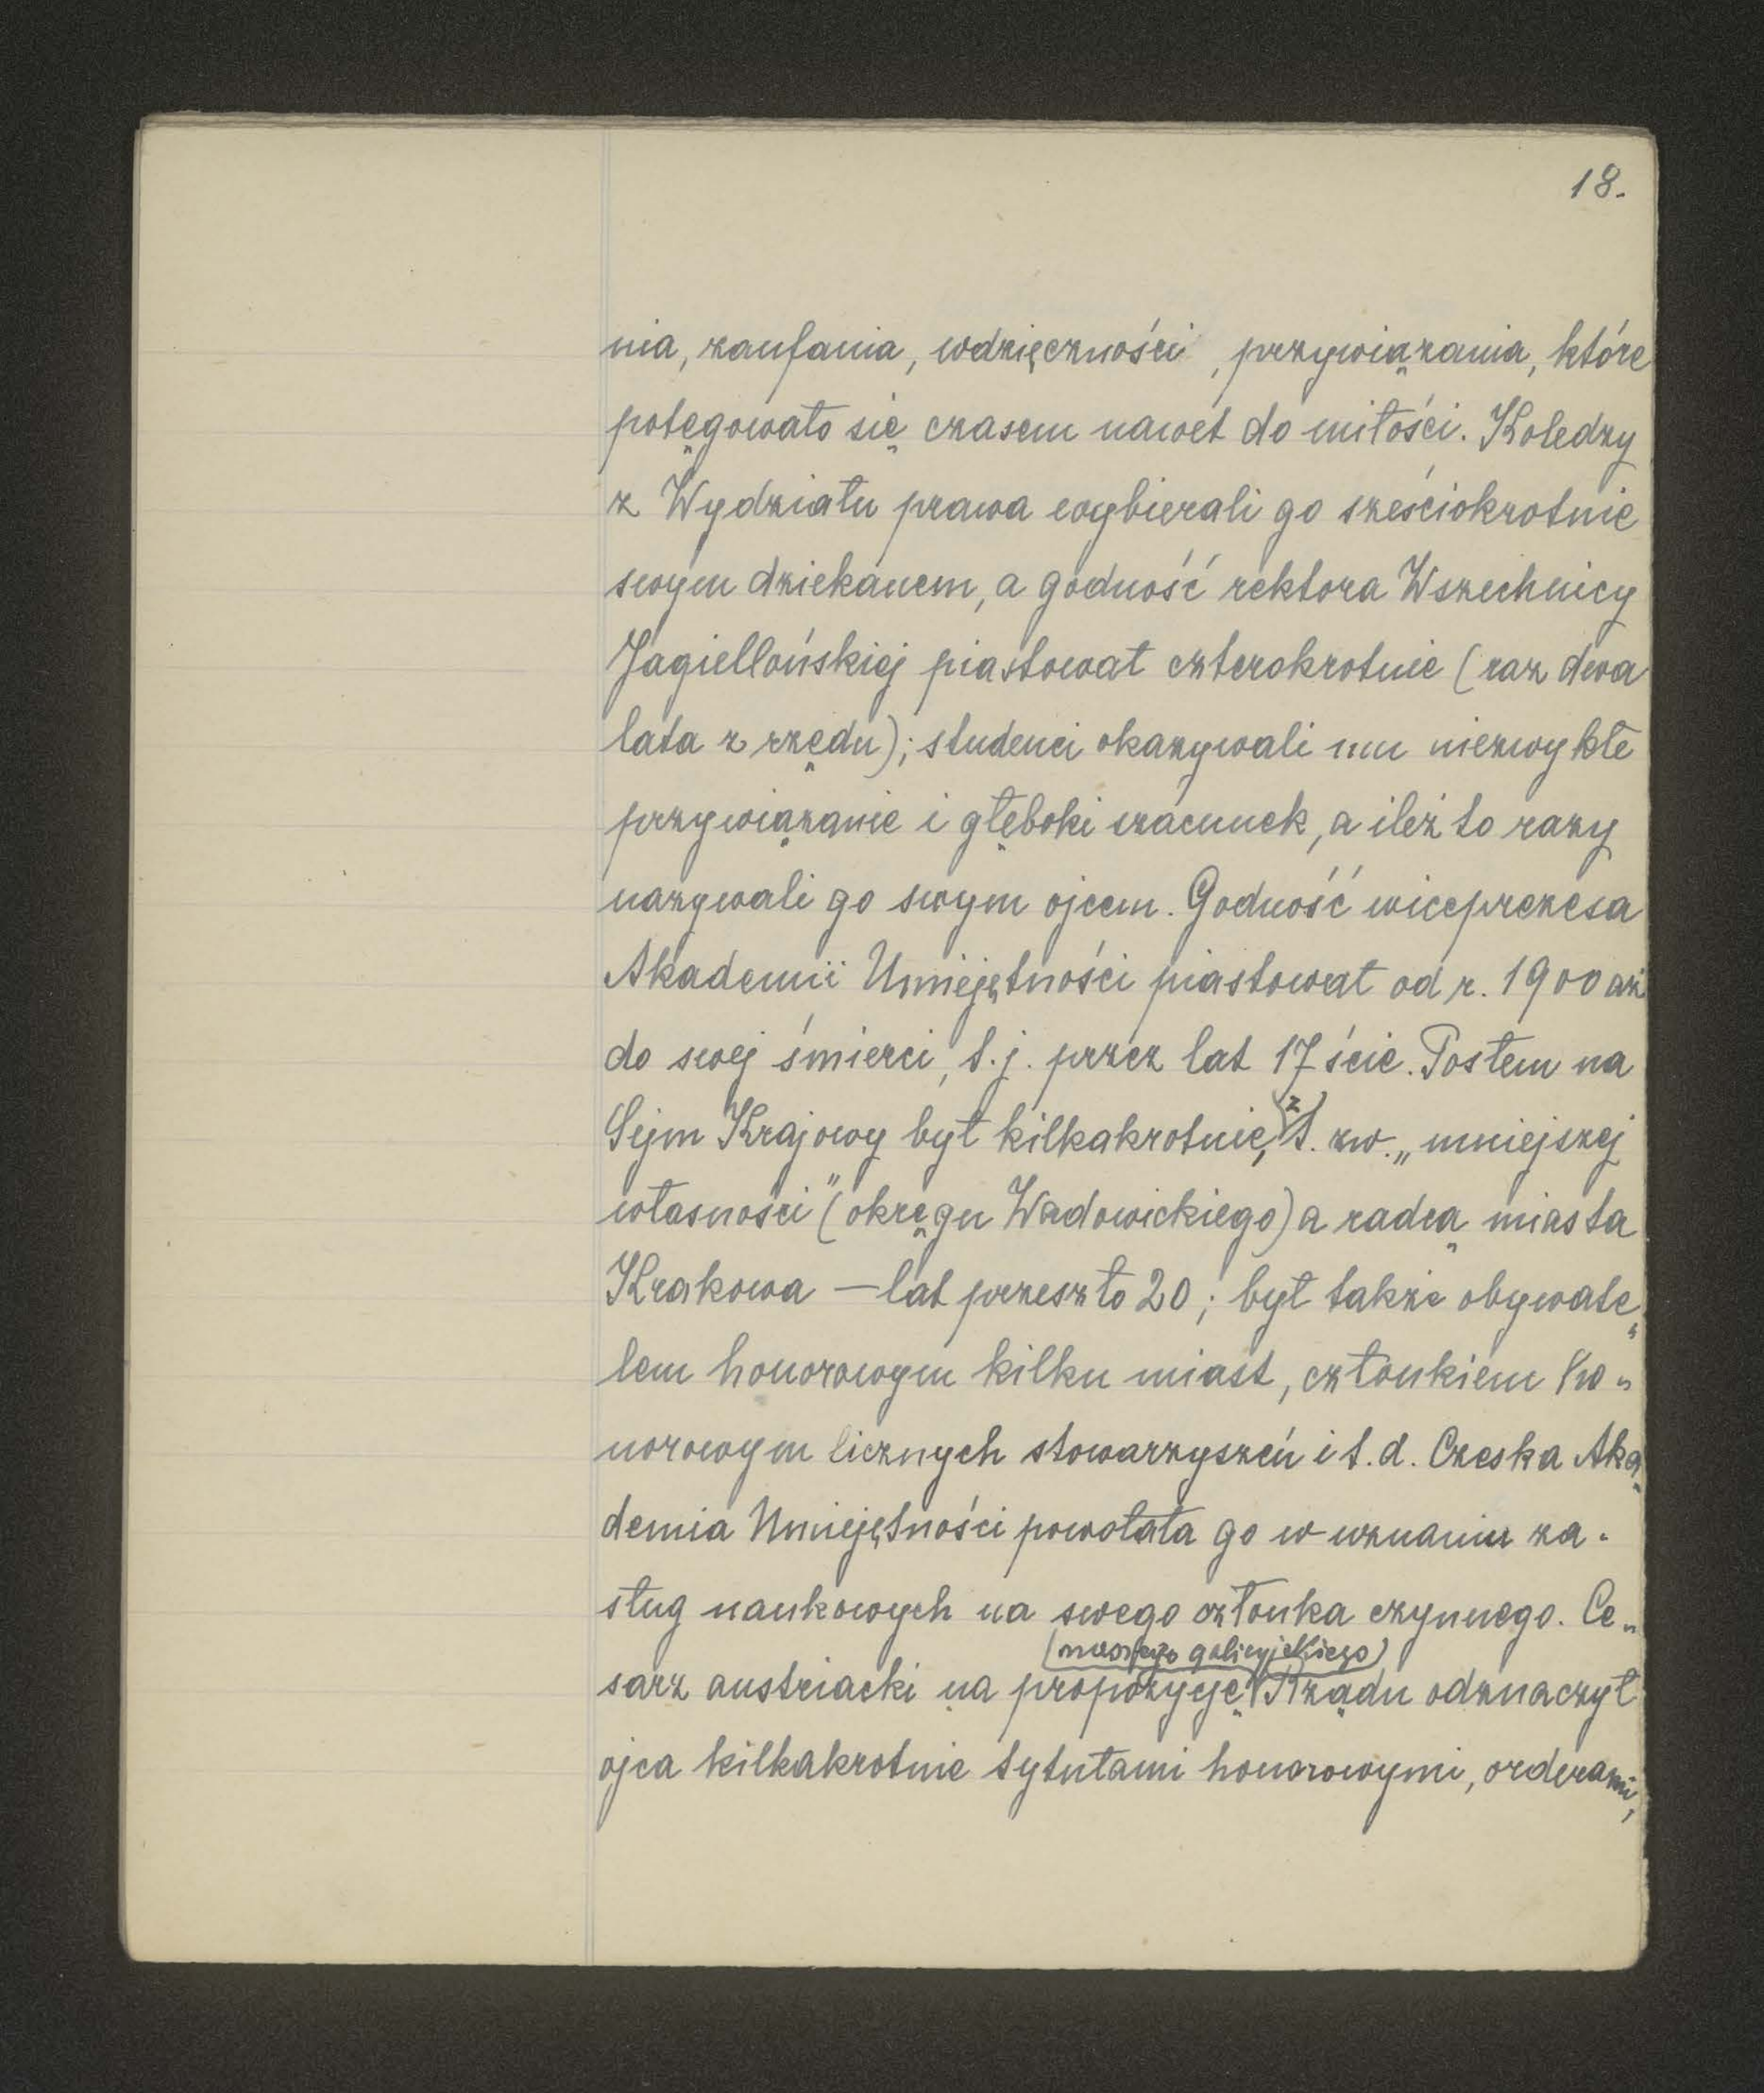 18.
nia, zaufania, wdzięczności, przywiązania, które
potęgowało się czasem nawet do miłości. Koledzy
z Wydziału prawa wybierali go sześciokrotnie
swym dziekanem, a godność rektora Wszechnicy
Jagiellońskiej piastował czterokrotnie (raz dwa
lata z rzędu); studenci okazywali mu niezwykłe
przywiązanie i głęboki szacunek, a ileż to razy
nazywali go swym ojcem. Godność wiceprezesa
Akademii Umiejętności piastował od r. 1900 aż
do swej śmierci, t.j. przez lat 17ście. Posłem na
Sejm Krajowy był kilkakrotnie, z t. zw. „mniejszej
własności" (okręgu Wadowickiego) a radcą miasta
Krakowa — lat przeszło 20; był także obywate„
lem honorowym kilku miast, członkiem ho„
norowym licznych stowarzyszeń i t.d. Czeska Aka„
demia Umiejętności powołała go w uznaniu za-
sług naukowych na swego członka czynnego. Ce„
(naszego galicyjskiego)
sarz austriacki na propozycję Rządu odznaczył
ojca kilkakrotnie tytułami honorowymi, orderami,